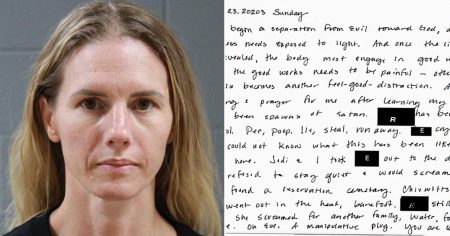 23.20203 Sunday
begin a separation from Evil toward God, a
ess needs exposed to light. And once the
vealed, the body must engage in good w
the good works needs to be painful – other
becomes another feel-good-distraction. A
& prayer for me after learning my
been spawns of satan. R has be
ol. Pee, poop, lie, steal, run away. E
could not know what this has been like
here. Jodi & I took E out to the d
refused to stay quiet & would scream
found a reservation cemetary.
went out in the heat, barefoot. E still
she screamed for another family, water, fo
On Eve. A manipulative plug. You are